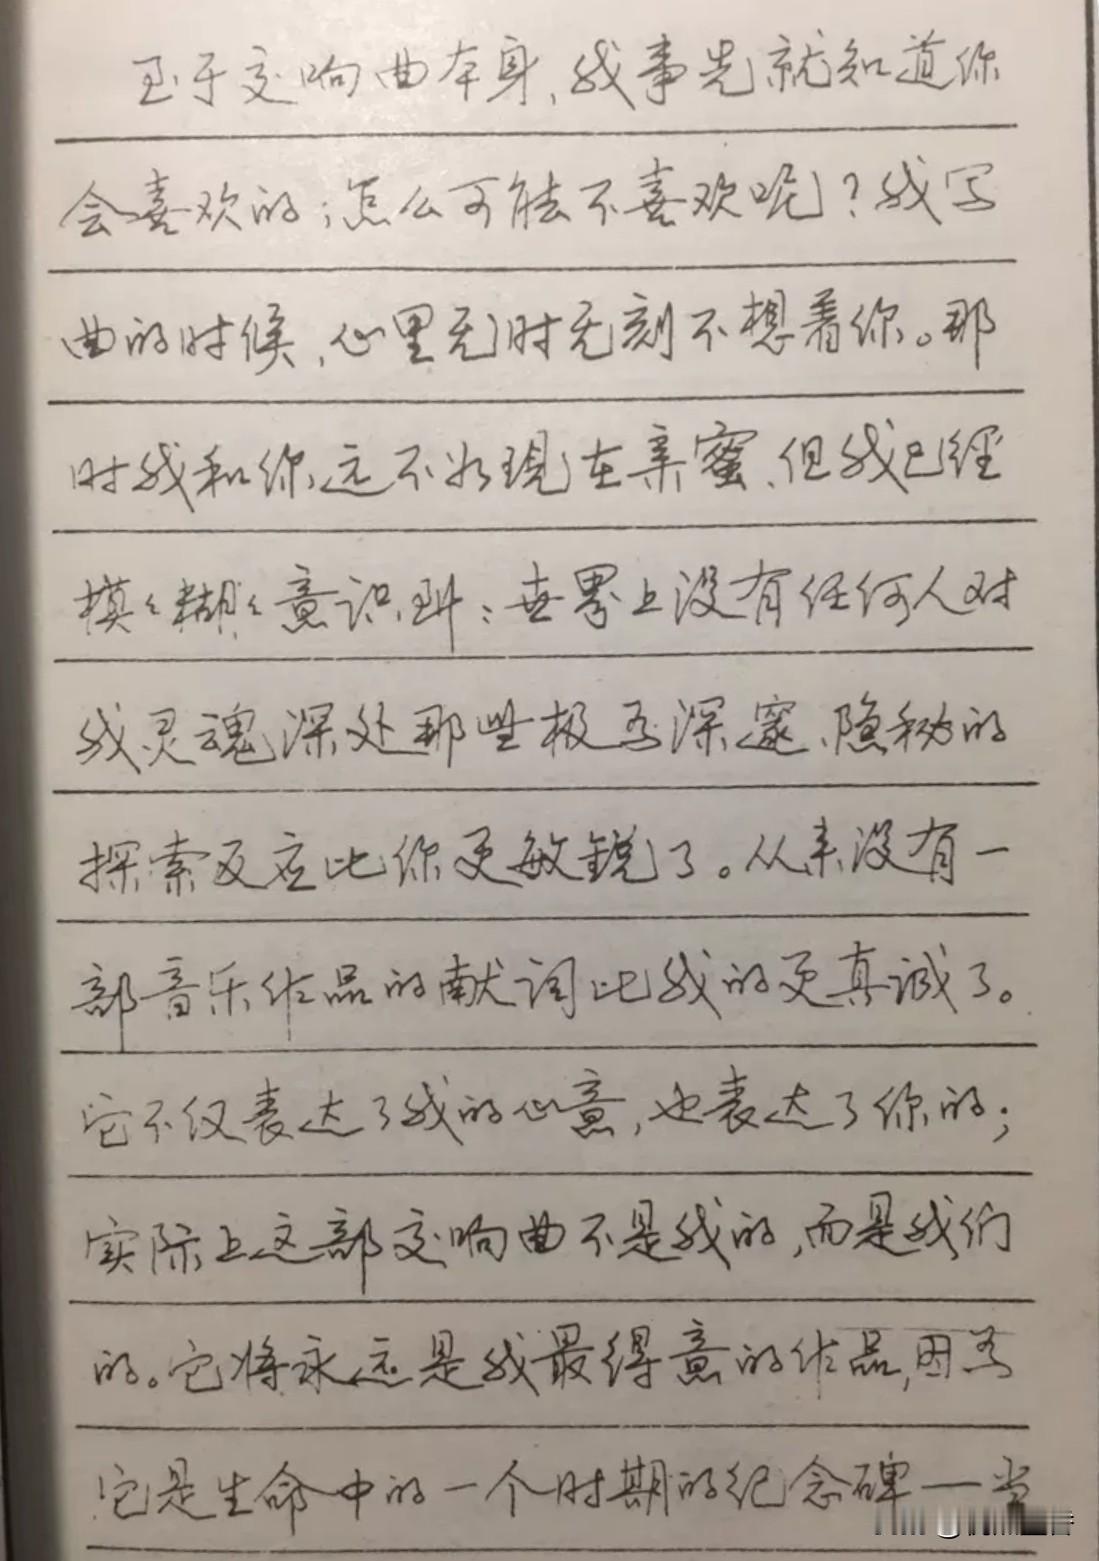 至于交响曲本身,我事先就知道你
会喜欢的;怎么可能不喜欢呢?我写
曲的时候,心里无时无刻不想着你。那
时我和你远不如現在亲蜜,但我已经
模々糊々意识到:世界上没有任何人对
我灵魂深处那些极为深邃、隐秘的
探索反应比你更敏锐了。从来没有一
部音乐作品的献词比我的更真诚了。
它不仅表达了我的心意,也表达了你的;
实际上这部交响曲不是我的,而是我们
的。它将永远是我最得意的作品,因为
它是生命中的一个时期的纪念碑——当